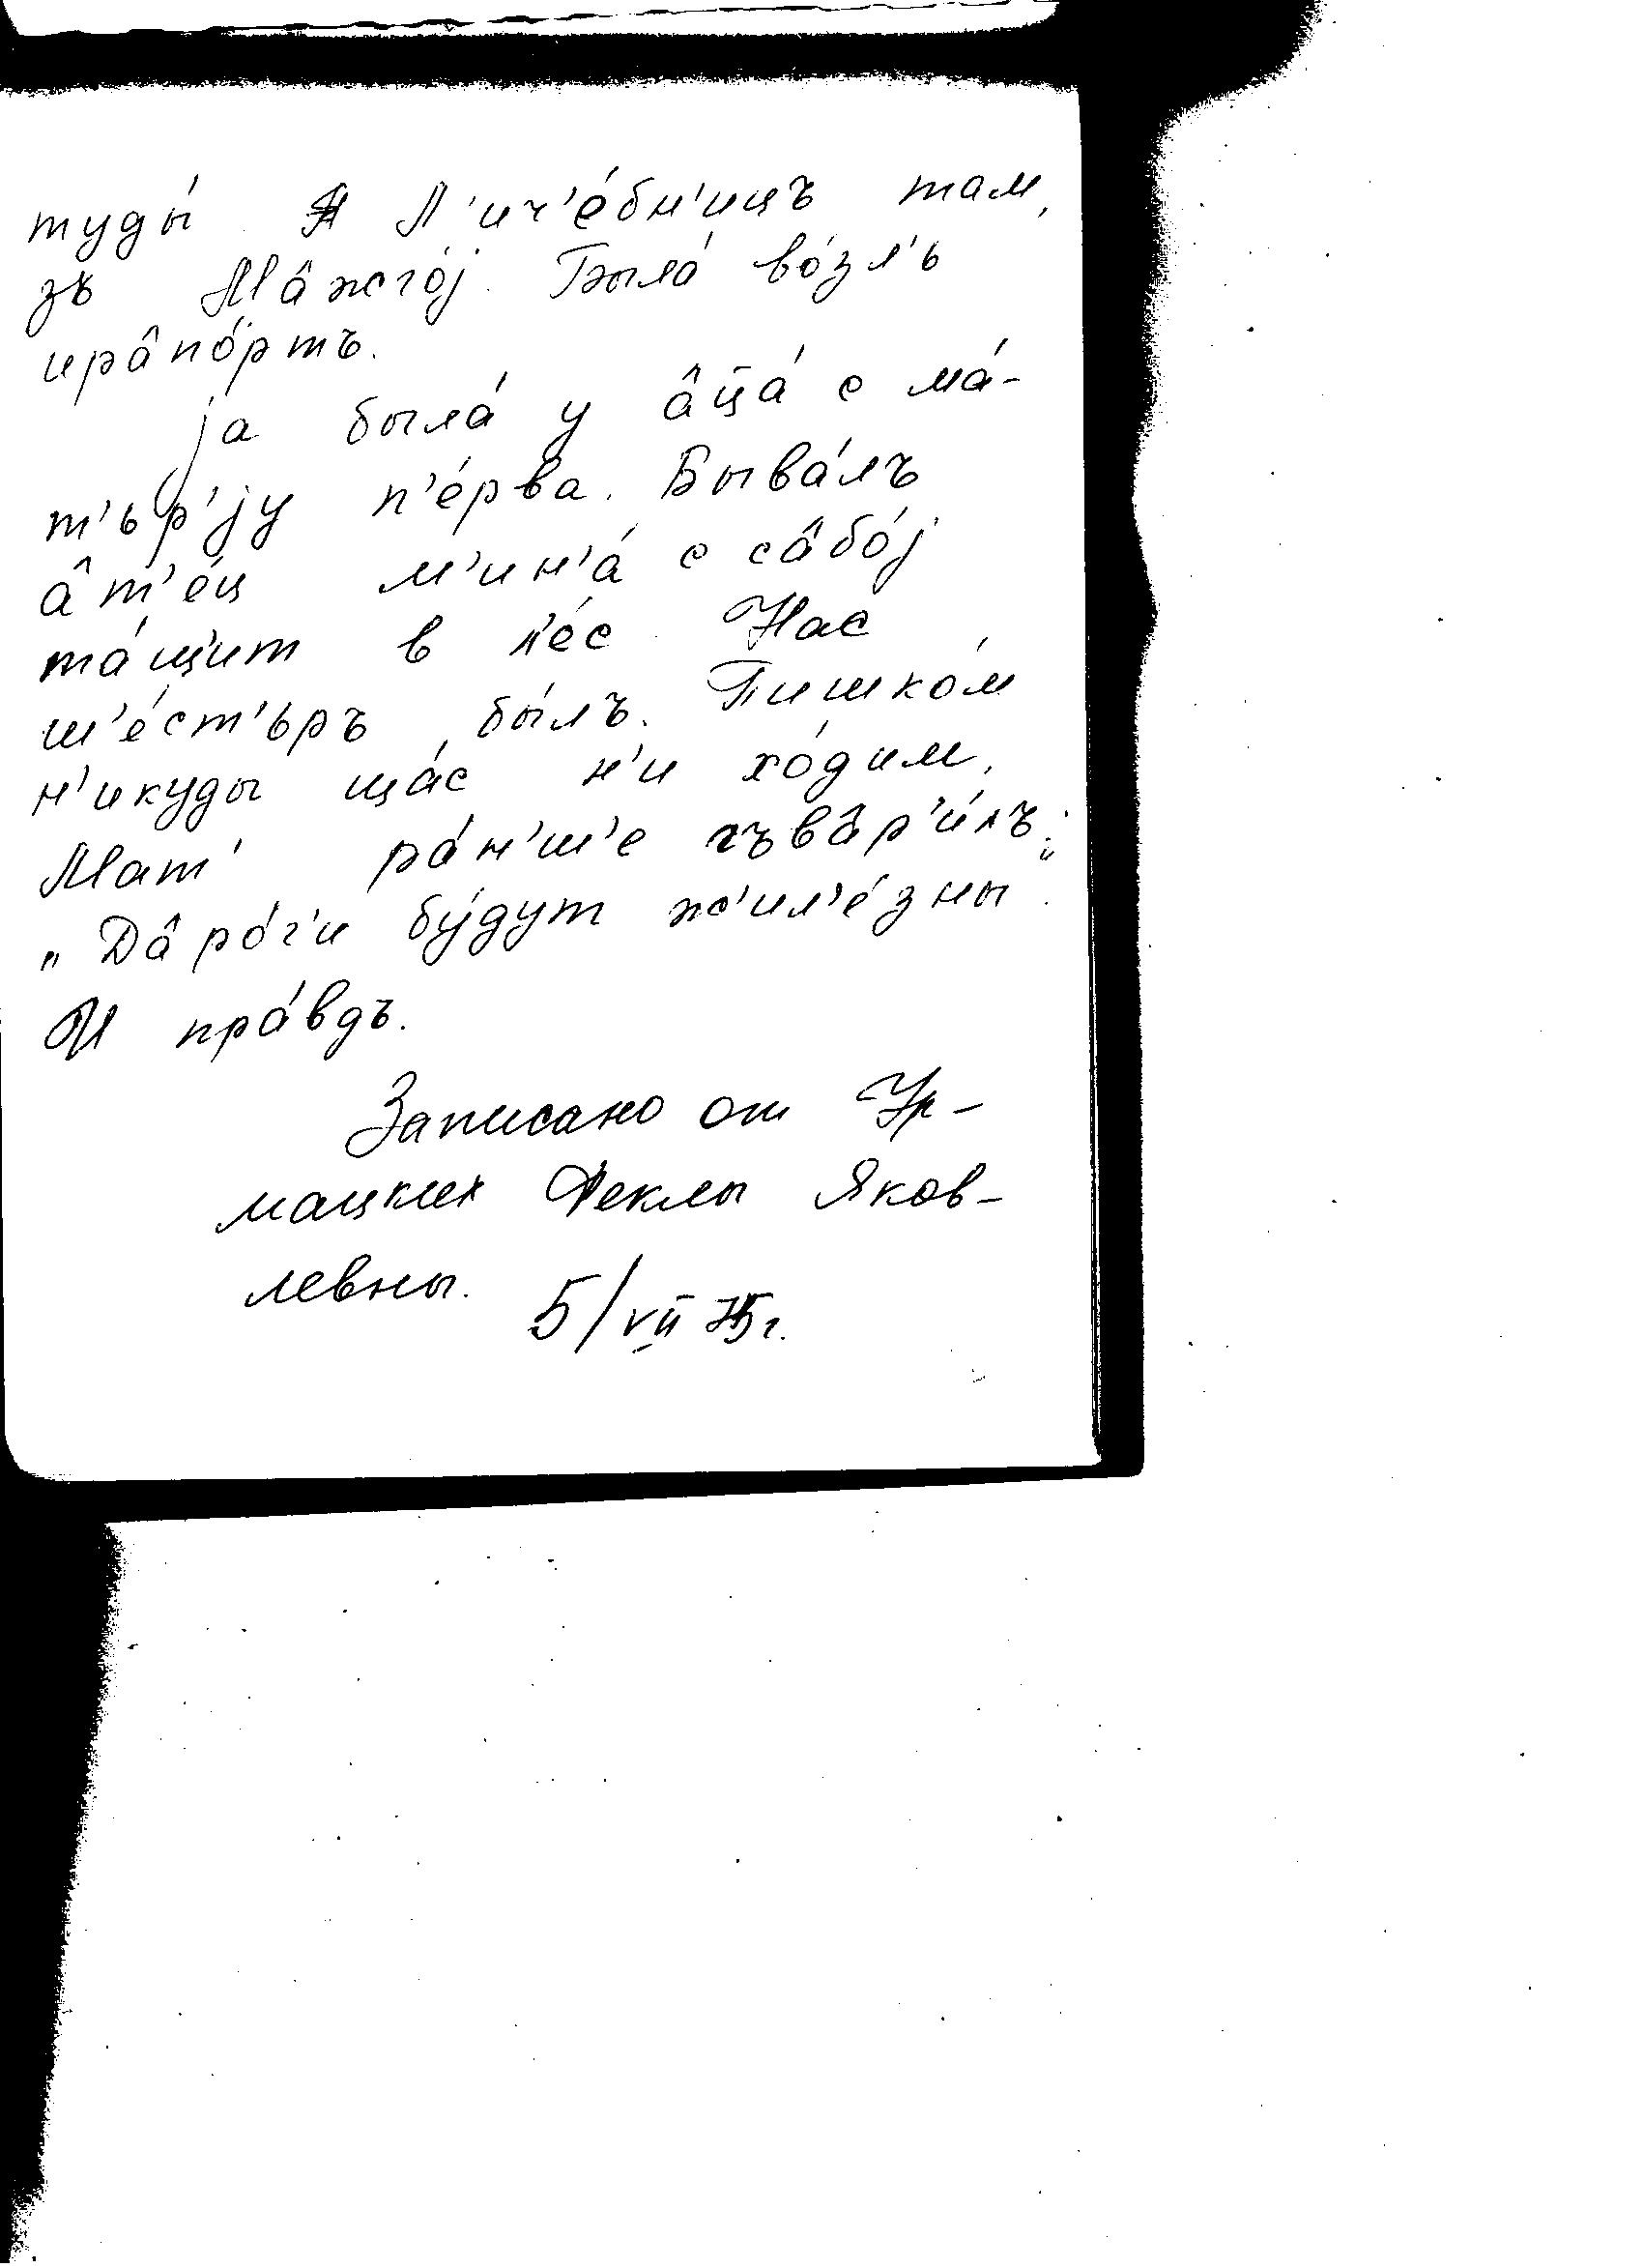 туды́ Л'ич'е́бн'ицъ там,
зъ Ма̂жго́ј. Была́ во́зл'ь
ира̂по́ртъ.
ја была́ у а̂ц̄а́ с ма́-
т'ър'ју п'е́рва. Быва́лъ
а̂т'е́ц м'ин'а́ с са̂бо́ј
та́щ'ит в л'е́с. Нас
ш'е́ст'ьръ бы́лъ. Пишко́м
н'икуды ща́с н'и хо́дим.
Мат' ра́н'ш'е гъва̂р'и́лъ:
„Да̂ро́г'и бу́дут ж'ил'е́зны“.
И пра́вдъ.
Записано от Ур-
мацких Феклы Яков-
левны.
5/VII 75г.